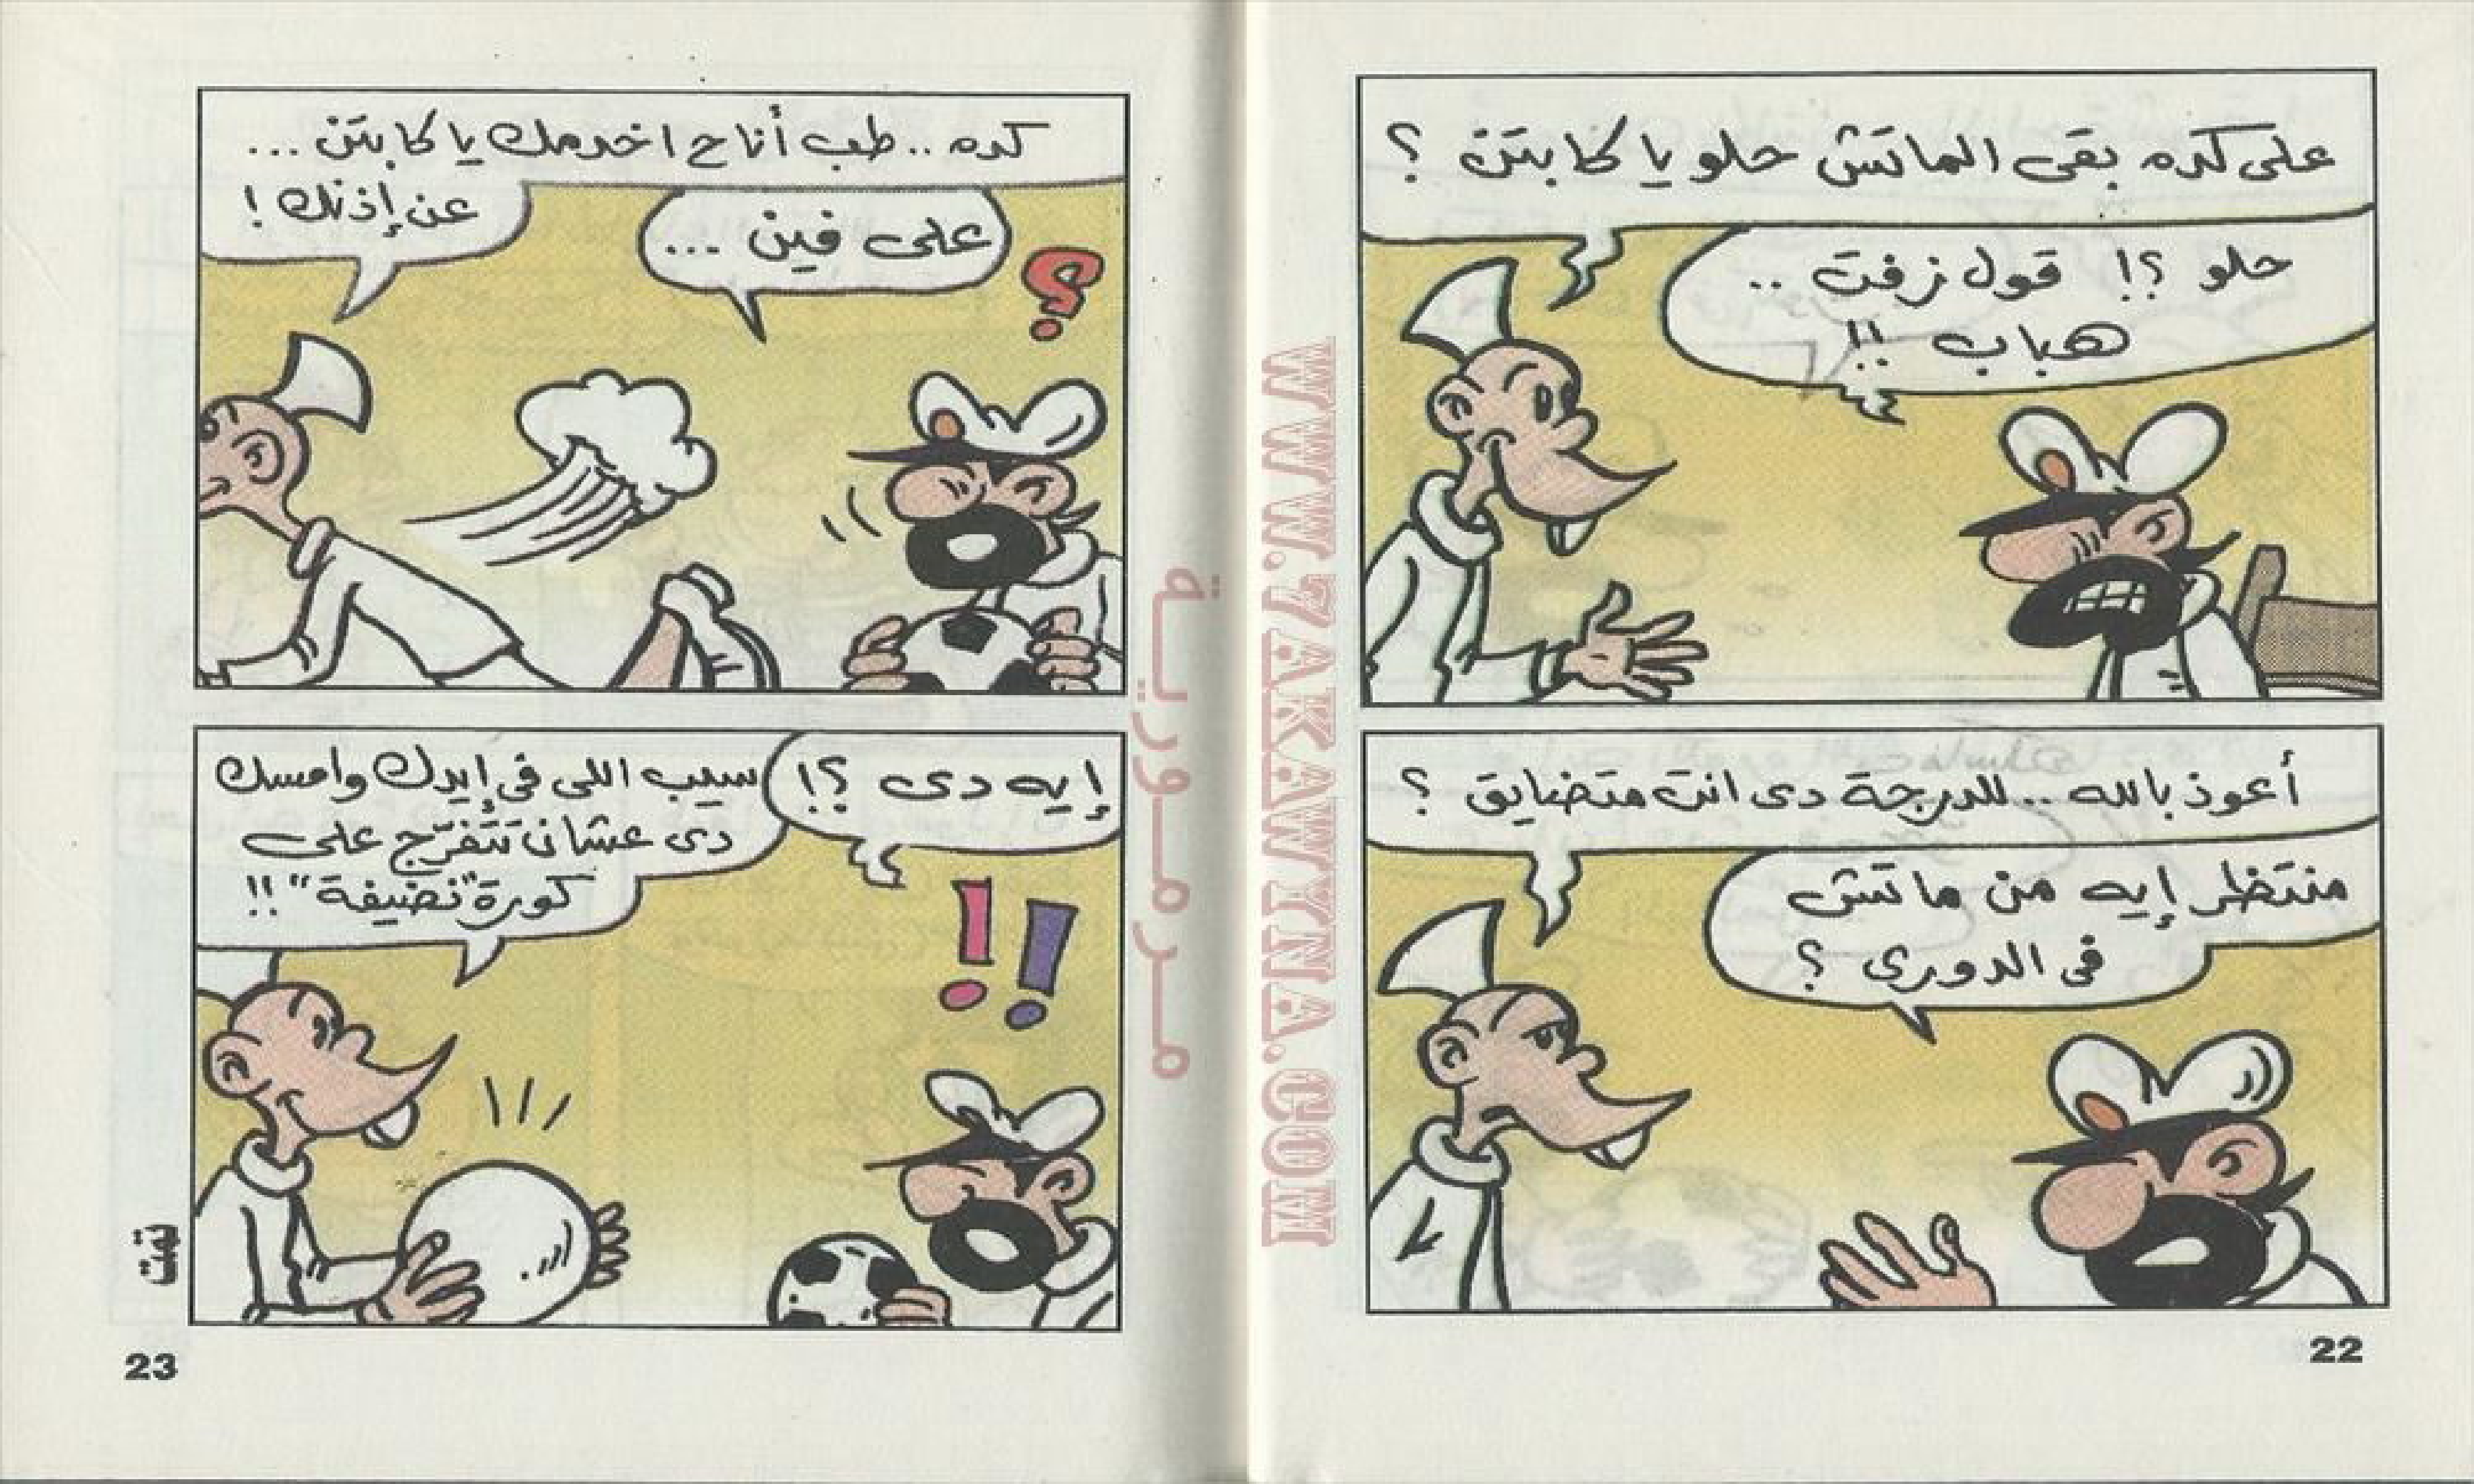 على كده بقى الماتش حلو يا كابتن ؟
حلو ؟! قول زفت ..
هباب !!
أعوذ بالله .. للدرجة دى انت متضايق ؟
منتظر إيه من ماتش
فى الدورى ؟
22
كده .. طب أنا ح اخدمك يا كابتن ...
عن إذنك !
على فين ...
؟
إيه دى ؟!
سيب اللى فى إيدك وامسك
دى عشان تتفرّج على
كورة "نضيفة" !!
!!
تمت
23
مرمورية
WWW.7AKAWYNA.COM